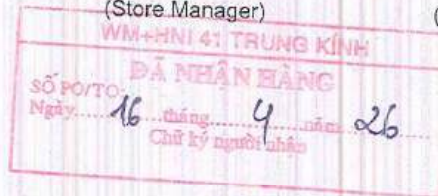 (Store Manager)
(
WM+HNI 41 TRUNG KÍNH
ĐÃ NHẬN HÀNG
SỐ PO/TO:
Ngày......16...tháng......4......năm...26
Chữ ký người nhận